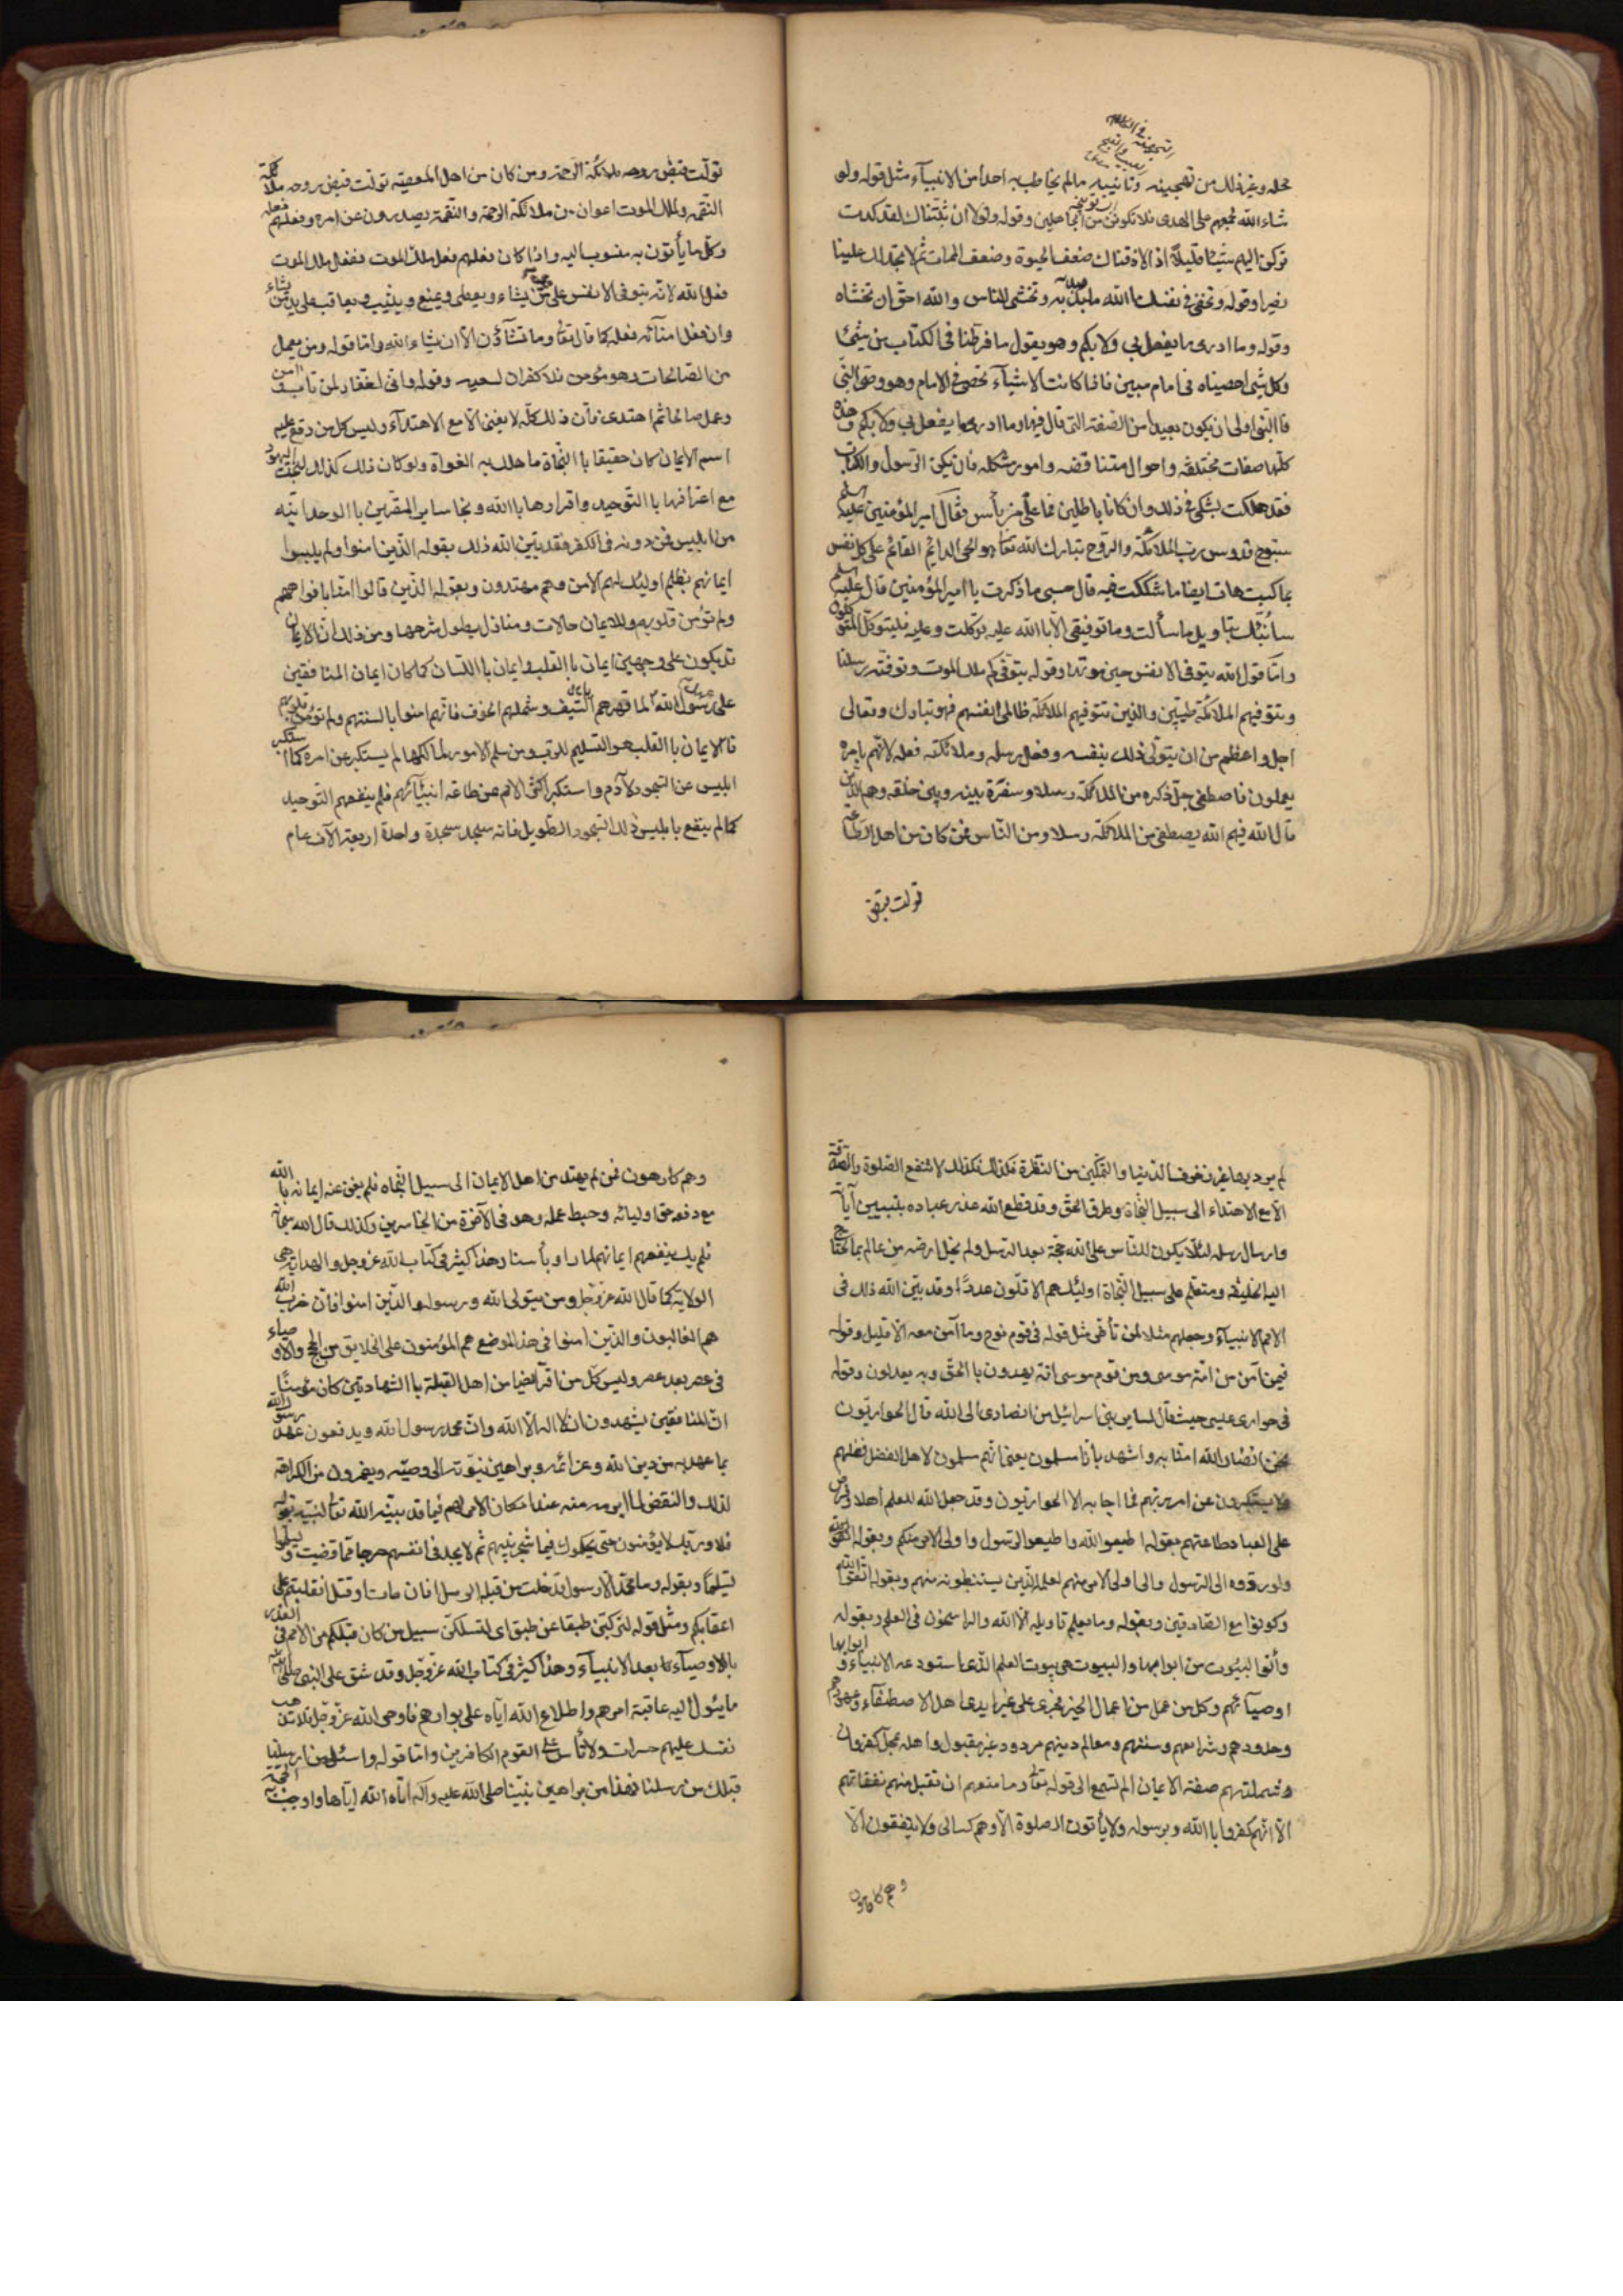 محله وغير ذلك من تهجينه وتأنيبه مالم يخاطب به احدا من الانبيآء مثل قوله ولو
شاء الله لجمعهم على الهدى فلا تكونن من الجاهلين وقوله ولولا ان ثبتناك لقد كدت
تركن اليهم شيئا قليلا اذا لاذقناك ضعف الحيوة وضعف الممات ثم لا تجد لك علينا
نصيرا وقوله وتخفى فى نفسك ما الله مبديه وتخشى الناس والله احق ان تخشاه
وقوله وما ادرى ما يفعل بى ولا بكم وهو يقول ما فرطنا فى الكتاب من شئ
وكل شئ احصيناه فى امام مبين فاذا كانت الاشيآء تحصى فى الامام وهو وصى النبى
فا النبى اولى ان يكون بعيدا من الصفة التى قال فيها وما ادرى ما يفعل بى ولا بكم وهذه
كلها صفات مختلفه واحوال متناقضه وامور مشكله فان يكن الرسول والكتاب
فقد هلكت بشكى فى ذلك وان كانا باطلين فما على من بأس فقال امير المؤمنين عليه السلم
سبوح قدوس رب الملائكة والروح تبارك الله تعا هو الحى الدائم القائم على كل نفس
بما كسبت هات ايضا ما شككت فيه قال حسبى ما ذكرت يا امير المؤمنين قال عليه السلم
سانبئك بتاويل ما سألت وما توفيقى الا با الله عليه توكلت وعليه فليتوكل المتوكلون
واما قول الله يتوفى الانفس حين موتها وقوله يتوفيكم ملك الموت وتوفته رسلنا
وتتوفيهم الملائكة طيبين والذين تتوفيهم الملائكة ظالمى انفسهم فهو تبارك وتعالى
اجل واعظم من ان يتولى ذلك بنفسه وفعل رسله وملائكته فعله لانهم بامره
يعملون فاصطفى جل ذكره من الملائكة رسلا وسفرة بينه وبين خلقه وهم الذين
قال الله فيهم الله يصطفى من الملائكة رسلا ومن الناس فمن كان من اهل الطاعة
تولت قبض
تولت قبض روحه ملائكة الرحمة ومن كان من اهل المعصية تولت قبض روحه ملائكة
النقمه ولملك الموت اعوان من ملائكة الرحمة والنقمة يصدرون عن امره وفعلهم فعله
وكل ما يأتون به منسوب اليه واذا كان فعلهم فعل ملك الموت ففعل ملك الموت
فعل الله لانه يتوفى الانفس على من يشاء ويعطى ويمنع ويثيب ويعاقب على يد من يشاء
وان فعل امنآئه فعله كما قال تعا وما تشآؤن الا ان يشاء الله واما قوله ومن يعمل
من الصالحات وهو مؤمن فلا كفران لسعيه وقوله وانى لغفار لمن تاب وامن
وعمل صالحا ثم اهتدى فان ذلك كله لا يغنى الا مع الاهتدآء وليس كل من وقع عليه
اسم الايمان كان حقيقا با النجاة ما هلك به الغواة ولو كان ذلك كذلك لنجت اليهود
مع اعترافها با التوحيد واقرارها با الله ونجا ساير المقرين با الوحدانيه
من ابليس فمن دونه فى الكفر فقد بين الله ذلك بقوله الذين امنوا ولم يلبسوا
ايمانهم بظلم اولئك لهم الامن وهم مهتدون وبقوله الذين قالوا امنا بافواههم
ولم تؤمن قلوبهم وللايمان حالات ومنازل يطول شرحها ومن ذلك ان الايمان
قد يكون على وجهين ايمان با القلب وايمان با اللسان كما كان ايمان المنافقين
على رسول الله لما قهرهم السيف وشملهم الخوف فانهم امنوا بالسنتهم ولم تؤمن قلوبهم
فا الايمان با القلب هو التسليم للرب ومن سلم الامور لمالكها لم يستكبر عن امره كما استكبر
ابليس عن السجود لآدم واستكبر اكثر الامم عن طاعة انبيآئهم فلم ينفعهم التوحيد
كما لم ينفع با بليس ذلك السجود الطويل فانه سجد سجدة واحدة اربعة الآف عام
لم يرد بها غير زخرف الدنيا والتمكين من النظرة فكذلك لا تنفع الصلوة والصدقة
الا مع الاهتداء الى سبيل النجاة وطرق الحق وقد قطع الله عذر عباده بتبيين آياته
وارسال رسله لئلا يكون للناس على الله حجة بعد الرسل ولم يخل ارضه من عالم بما يحتاج
اليه الخليقه ومتعلم على سبيل النجاة اولئك هم الاقلون عددا وقد بين الله ذلك فى
الامم الانبيآء وجعلهم مثلا لمن تأخر مثل قوله فى قوم نوح وما آمن معه الا قليل وقوله
فيمن آمن من امة موسى ومن قوم موسى امة يهدون با الحق وبه يعدلون وقوله
فى حوارى عيسى حيث قال لساير بنى اسرائيل من انصارى الى الله قال الحواريون
نحن انصار الله امنا به واشهد بأنا مسلمون يعنى انهم مسلمون لاهل الفضل فضلهم
ولا يستكبرون عن امر ربهم فما اجابه الا الحواريون وقد جعل الله للعلم أهلا وفرض
على العباد طاعتهم بقوله اطيعوا الله واطيعوا الرسول واولى الامر منكم وبقوله
ولو ردوه الى الرسول والى اولى الامر منهم لعلمه الذين يستنبطونه منهم وبقوله اتقوا الله
وكونوا مع الصادقين وبقوله وما يعلم تاويله الا الله والراسخون فى العلم وبقوله
وأتوا البيوت من ابوابها والبيوت هى بيوت العلم الذى استودعه الانبياء وابوابها
اوصيآئهم وكل من عمل من اعمال الخير فجرى على غير ايدى اهل الاصطفآء وعهودهم
وحدودهم وشرائعهم وسننهم ومعالم دينهم مردود غير مقبول واهله بمحل كفر وان
شملتهم صفة الايمان الم تسمع الى قوله تعا وما منعهم ان تقبل منهم نفقاتهم
الا انهم كفروا با الله وبرسوله ولا يأتون الصلوة الا وهم كسالى ولا ينفقون الا
وهم كارهون
وهم كارهون فمن لم يهتد من اهل الايمان الى سبيل النجاه فلم يغن عنه ايمانه با الله
مع دفعه حق اوليائه وحبط عمله وهو فى الآخرة من الخاسرين وكذلك قال الله سبحانه
فلم يك ينفعهم ايمانهم لما راوا بأسنا وهذا كثير فى كتاب الله عز وجل والهداية هى
الولاية كما قال الله عز وجل ومن يتولى الله ورسوله والذين امنوا فان حزب الله
هم الغالبون والذين امنوا فى هذا الموضع هم المؤمنون على الخلايق من الحجج والاوصياء
فى عصر بعد عصر وليس كل من اقر ايضا من اهل القبلة با الشهادتين كان مؤمنا
ان المنافقين يشهدون ان لا اله الا الله وان محمد رسول الله ويدفعون عهد رسول الله
بما عهد به من دين الله وعزائمه وبراهين نبوته الى وصيه ويضمرون من الكراهة
لذلك والنقض لما ابرمه منه عند امكان الامر لهم فيما قد بينه الله تعا لنبيه بقوله
فلا وربك لا يؤمنون حتى يحكموك فيما شجر بينهم ثم لا يجد فى انفسهم حرجا مما قضيت ويسلموا
تسليما وبقوله وما محمد الا رسول قد خلت من قبله الرسل افان مات او قتل انقلبتم على
اعقابكم ومثل قوله لتركبن طبقا عن طبق اى لتسلكن سبيل من كان قبلكم من الامم فى الغدر
بالاوصيآء بعد الانبيآء وهذا كثير فى كتاب الله عز وجل وقد شق على النبى صلى الله
ما يئول اليه عاقبة امرهم واطلاع الله اياه على بوارهم فاوحى الله عز وجل فلا تذهب
نفسك عليهم حسرات ولا تأس على القوم الكافرين واما قوله واسئل من ارسلنا
قبلك من رسلنا فهذا من براهين نبينا صلى الله عليه وآله آتاه الله اياها واوجب به الحجة